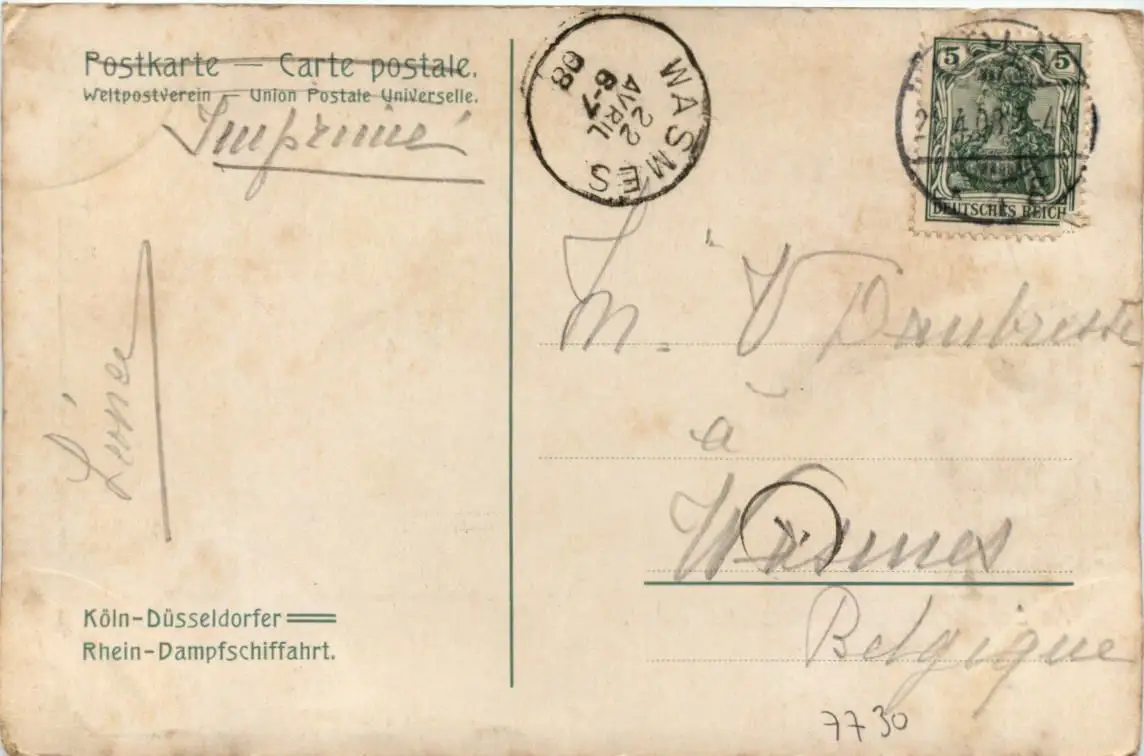 Postkarte — Carte postale.
Weltpostverein — Union Postale Universelle.
Imprimé
WASMES
22
AVRIL
6-7
08
5 5
DEUTSCHES REICH
M. V Daubresse
à
Wasmes
Belgique
Léonce
Köln-Düsseldorfer
Rhein-Dampfschiffahrt.
7730